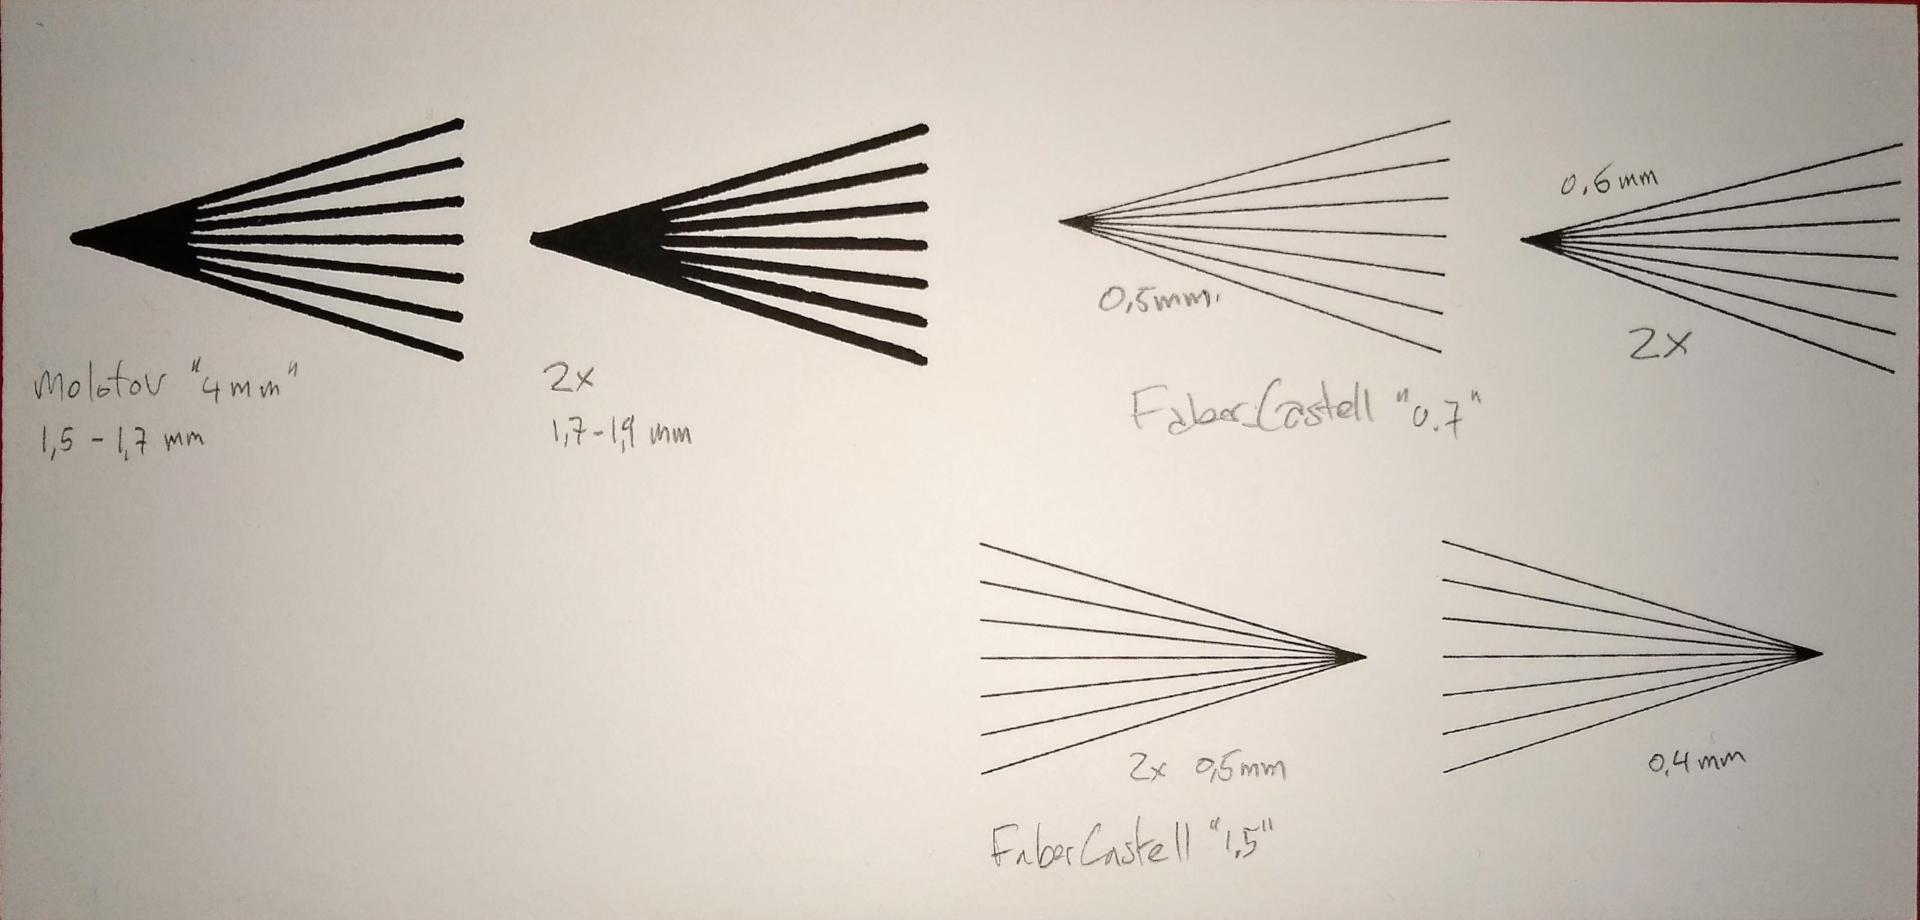 Molotov "4mm"
1,5 - 1,7 mm
2x
1,7-1,9 mm
0,5mm.
0,6mm
2x
FaberCastell "0.7"
2x 0,5mm
0,4mm
FaberCastell "1,5"